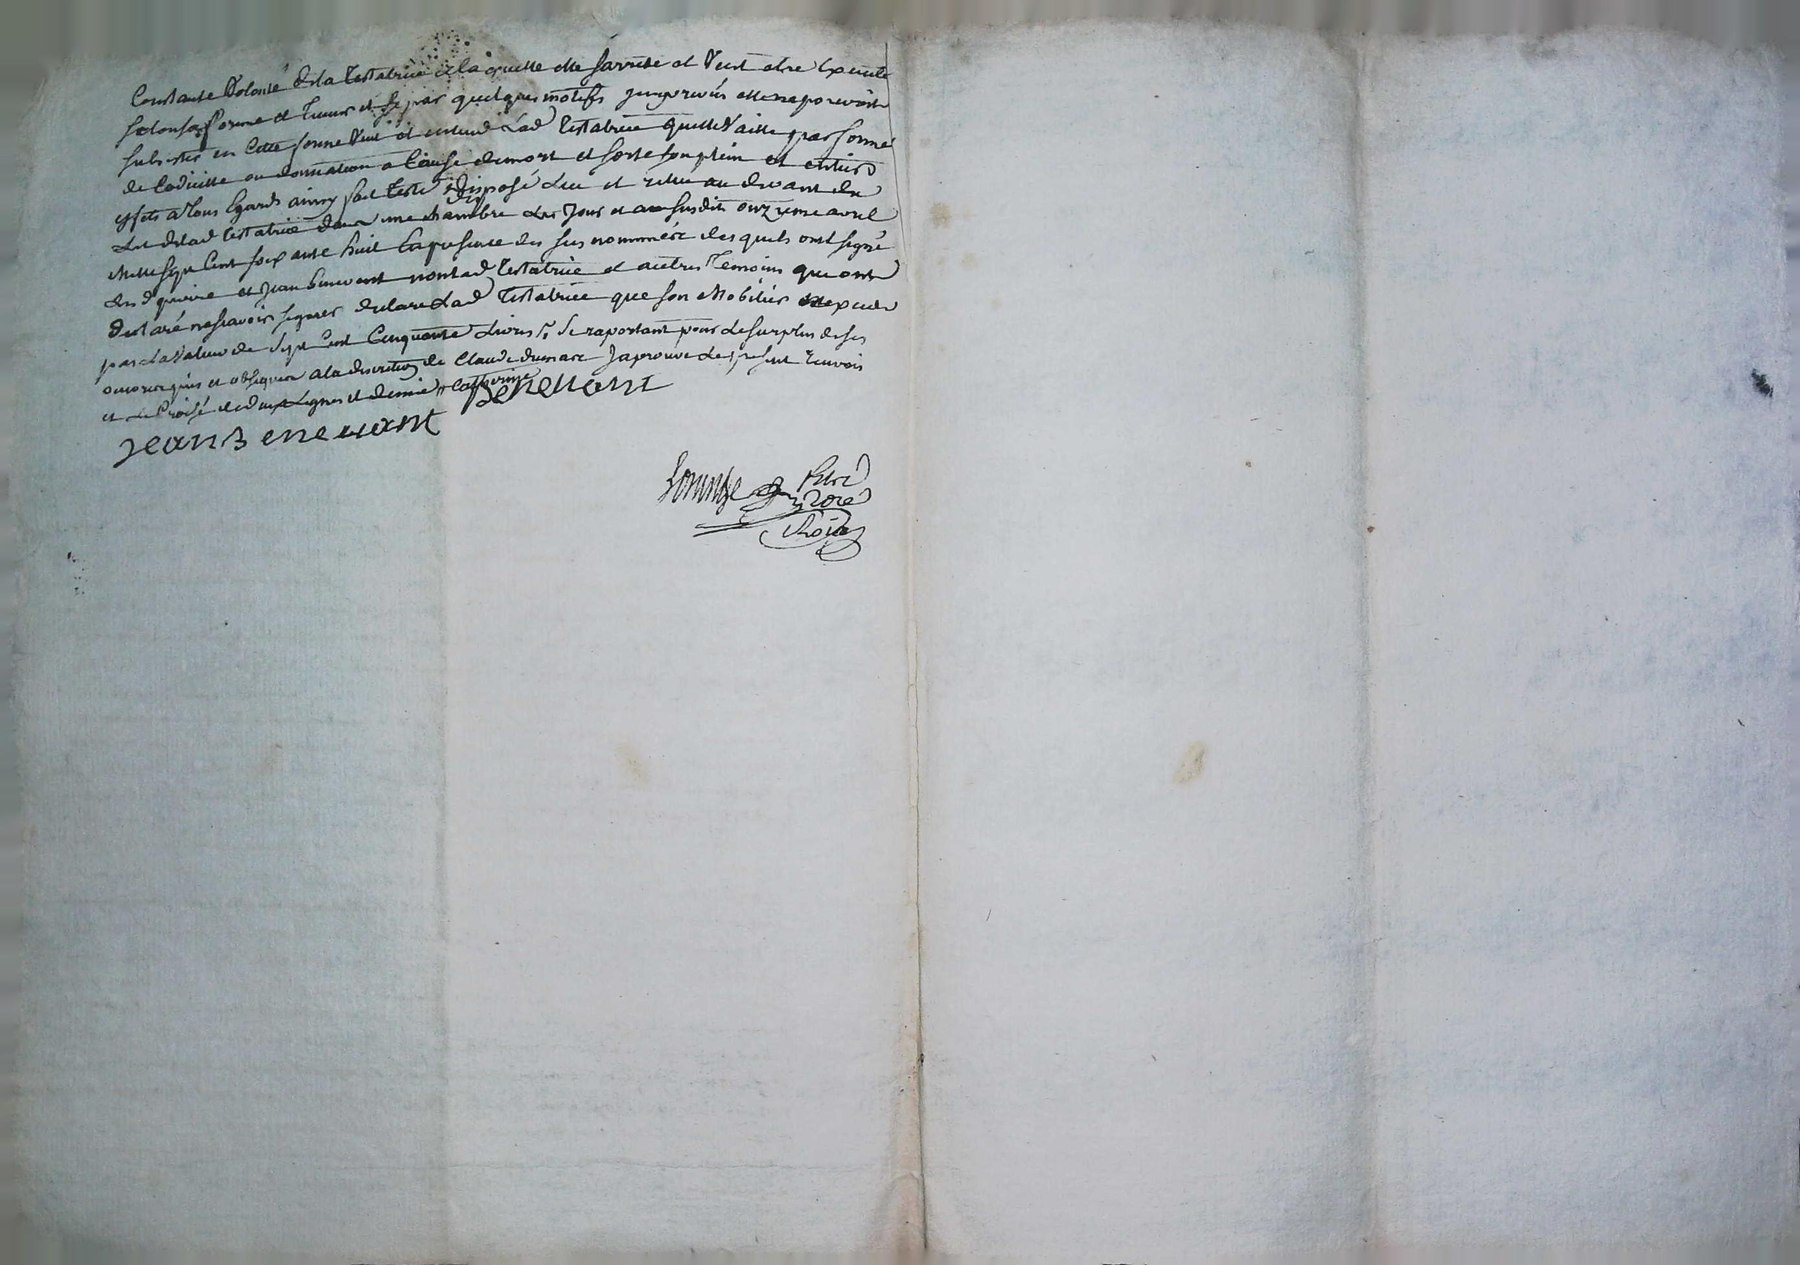 Constante Volonté de la Testatrice a la quelle elle sarreste et Veut etre Executé
selon sa forme et Teneur et si par quelques motifs jmprevûs elle ne pouvoit
subsister en cette forme Veut et entend Lad Testatrice quelle Vaille par forme
de Codicille ou donnation a Cause de mort et sorte son plein et entier
effets a Tous Egards ainsy fait Testé disposé Lue et relue au devant du
Lit de lad Testatrice dans une chambre Les Jour et an susdits onzieme avril
Mille sept Cent soixante huit En presence des sus nommées les quels ont signé
et Jean Benevent non lad Testatrice et autres Temoins qui ont
declaré ne sçavoir signer declare Lad Testatrice que son Mobilier nexcede
pas La Valeur de Sept Cent Cinquante Livres Se raportant pour Le surplus de ses
et obseques a la discretion de Claude dumarc Japrouve Le present renvois
et Lignes et demie Catherine Benevent
Jean Benevant
Notre
Roial